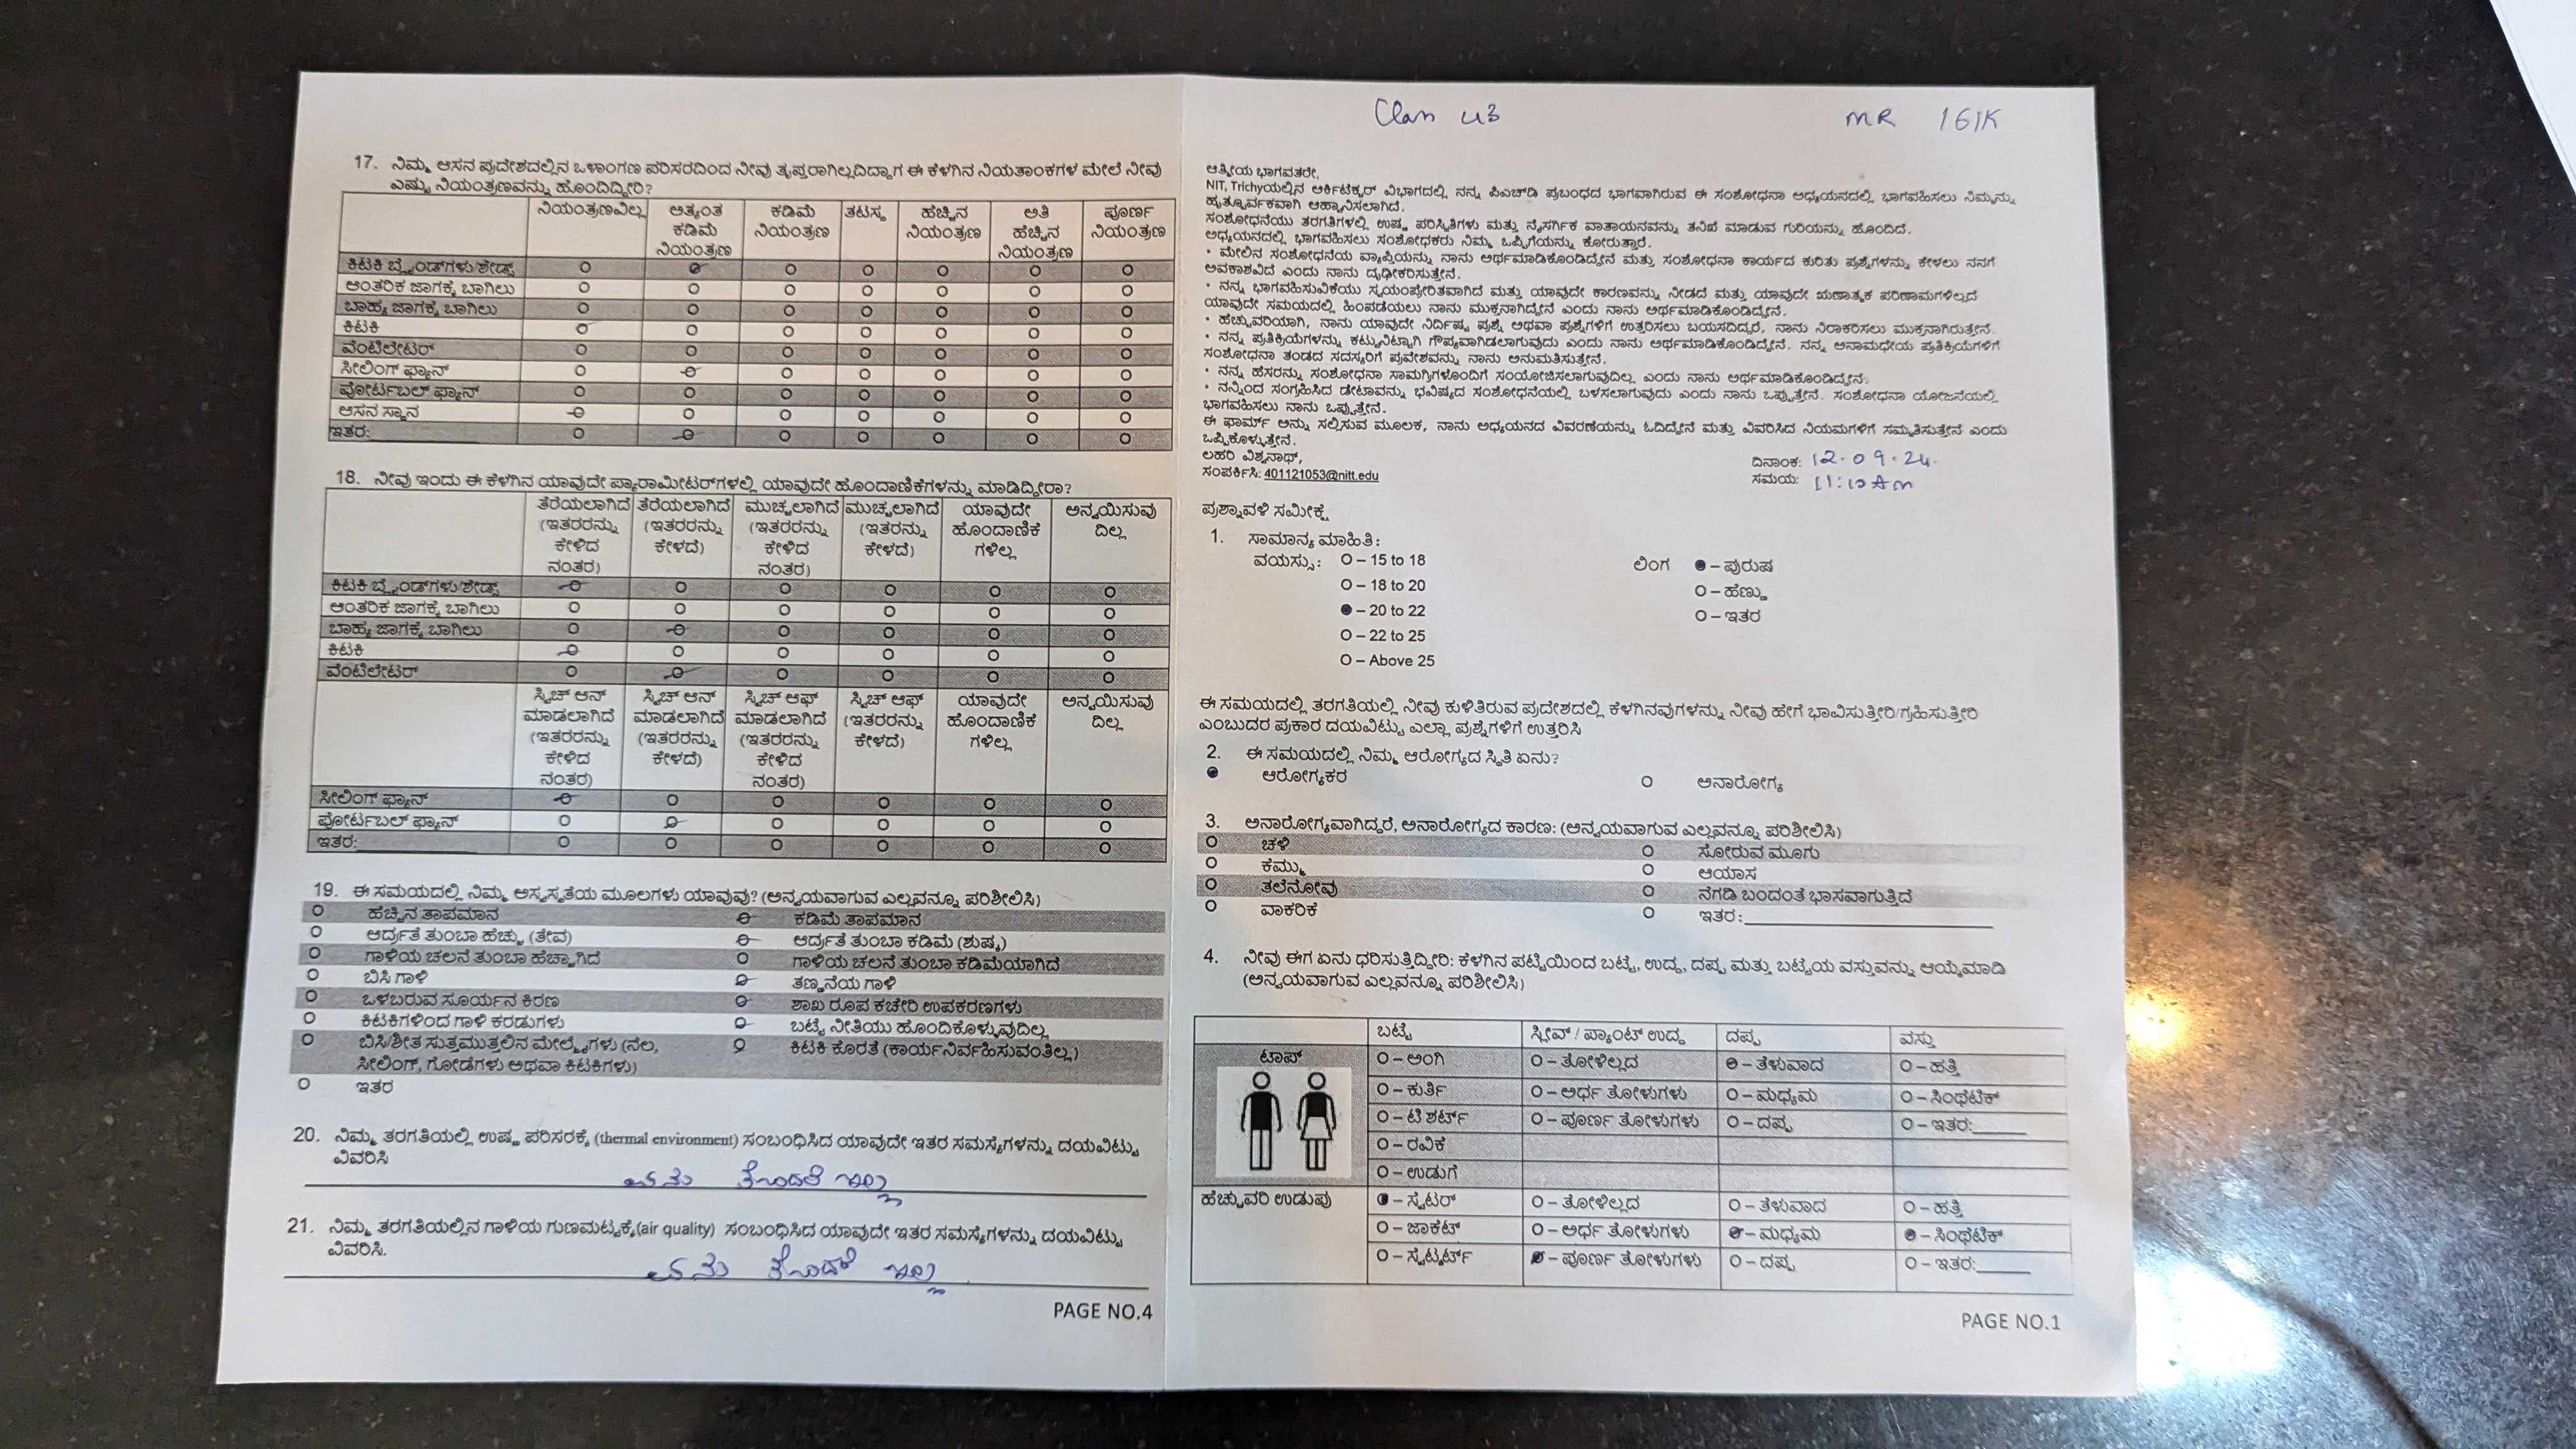 17. ನಿಮ್ಮ ಆಸನ ಪ್ರದೇಶದಲ್ಲಿನ ಒಳಾಂಗಣ ಪರಿಸರದಿಂದ ನೀವು ತೃಪ್ತರಾಗಿಲ್ಲದಿದ್ದಾಗ ಈ ಕೆಳಗಿನ ನಿಯತಾಂಕಗಳ ಮೇಲೆ ನೀವು
ಎಷ್ಟು ನಿಯಂತ್ರಣವನ್ನು ಹೊಂದಿದ್ದೀರಿ?
ನಿಯಂತ್ರಣವಿಲ್ಲ ಅತ್ಯಂತ ಕಡಿಮೆ ನಿಯಂತ್ರಣ ಕಡಿಮೆ ನಿಯಂತ್ರಣ ತಟಸ್ಥ ಹೆಚ್ಚಿನ ನಿಯಂತ್ರಣ ಅತಿ ಹೆಚ್ಚಿನ ನಿಯಂತ್ರಣ ಪೂರ್ಣ ನಿಯಂತ್ರಣ
ಕಿಟಕಿ ಬ್ಲೈಂಡ್‌ಗಳು/ಶೇಡ್ಸ್
ಆಂತರಿಕ ಜಾಗಕ್ಕೆ ಬಾಗಿಲು
ಬಾಹ್ಯ ಜಾಗಕ್ಕೆ ಬಾಗಿಲು
ಕಿಟಕಿ
ವೆಂಟಿಲೇಟರ್
ಸೀಲಿಂಗ್ ಫ್ಯಾನ್
ಪೋರ್ಟಬಲ್ ಫ್ಯಾನ್
ಆಸನ ಸ್ಥಾನ
ಇತರ:
18. ನೀವು ಇಂದು ಈ ಕೆಳಗಿನ ಯಾವುದೇ ಪ್ಯಾರಾಮೀಟರ್‌ಗಳಲ್ಲಿ ಯಾವುದೇ ಹೊಂದಾಣಿಕೆಗಳನ್ನು ಮಾಡಿದ್ದೀರಾ?
ತೆರೆಯಲಾಗಿದೆ (ಇತರರನ್ನು ಕೇಳಿದ ನಂತರ) ತೆರೆಯಲಾಗಿದೆ (ಇತರರನ್ನು ಕೇಳದೆ) ಮುಚ್ಚಲಾಗಿದೆ (ಇತರರನ್ನು ಕೇಳಿದ ನಂತರ) ಮುಚ್ಚಲಾಗಿದೆ (ಇತರರನ್ನು ಕೇಳದೆ) ಯಾವುದೇ ಹೊಂದಾಣಿಕೆ ಗಳಿಲ್ಲ ಅನ್ವಯಿಸುವು ದಿಲ್ಲ
ಕಿಟಕಿ ಬ್ಲೈಂಡ್‌ಗಳು/ಶೇಡ್ಸ್
ಆಂತರಿಕ ಜಾಗಕ್ಕೆ ಬಾಗಿಲು
ಬಾಹ್ಯ ಜಾಗಕ್ಕೆ ಬಾಗಿಲು
ಕಿಟಕಿ
ವೆಂಟಿಲೇಟರ್
ಸ್ವಿಚ್ ಆನ್ ಮಾಡಲಾಗಿದೆ (ಇತರರನ್ನು ಕೇಳಿದ ನಂತರ) ಸ್ವಿಚ್ ಆನ್ ಮಾಡಲಾಗಿದೆ (ಇತರರನ್ನು ಕೇಳದೆ) ಸ್ವಿಚ್ ಆಫ್ ಮಾಡಲಾಗಿದೆ (ಇತರರನ್ನು ಕೇಳಿದ ನಂತರ) ಸ್ವಿಚ್ ಆಫ್ (ಇತರರನ್ನು ಕೇಳದೆ) ಯಾವುದೇ ಹೊಂದಾಣಿಕೆ ಗಳಿಲ್ಲ ಅನ್ವಯಿಸುವು ದಿಲ್ಲ
ಸೀಲಿಂಗ್ ಫ್ಯಾನ್
ಪೋರ್ಟಬಲ್ ಫ್ಯಾನ್
ಇತರ:
19. ಈ ಸಮಯದಲ್ಲಿ ನಿಮ್ಮ ಅಸ್ವಸ್ಥತೆಯ ಮೂಲಗಳು ಯಾವುವು? (ಅನ್ವಯವಾಗುವ ಎಲ್ಲವನ್ನೂ ಪರಿಶೀಲಿಸಿ)
ಹೆಚ್ಚಿನ ತಾಪಮಾನ ಕಡಿಮೆ ತಾಪಮಾನ
ಆರ್ದ್ರತೆ ತುಂಬಾ ಹೆಚ್ಚು (ತೇವ) ಆರ್ದ್ರತೆ ತುಂಬಾ ಕಡಿಮೆ (ಶುಷ್ಕ)
ಗಾಳಿಯ ಚಲನೆ ತುಂಬಾ ಹೆಚ್ಚಾಗಿದೆ ಗಾಳಿಯ ಚಲನೆ ತುಂಬಾ ಕಡಿಮೆಯಾಗಿದೆ
ಬಿಸಿ ಗಾಳಿ ತಣ್ಣನೆಯ ಗಾಳಿ
ಒಳಬರುವ ಸೂರ್ಯನ ಕಿರಣ ಶಾಖ ರೂಪ ಕಚೇರಿ ಉಪಕರಣಗಳು
ಕಿಟಕಿಗಳಿಂದ ಗಾಳಿ ಕರಡುಗಳು ಬಟ್ಟೆ ನೀತಿಯು ಹೊಂದಿಕೊಳ್ಳುವುದಿಲ್ಲ
ಬಿಸಿ/ಶೀತ ಸುತ್ತಮುತ್ತಲಿನ ಮೇಲ್ಮೈಗಳು (ನೆಲ, ಕಿಟಕಿ ಕೊರತೆ (ಕಾರ್ಯನಿರ್ವಹಿಸುವಂತಿಲ್ಲ)
ಸೀಲಿಂಗ್, ಗೋಡೆಗಳು ಅಥವಾ ಕಿಟಕಿಗಳು)
ಇತರ
20. ನಿಮ್ಮ ತರಗತಿಯಲ್ಲಿ ಉಷ್ಣ ಪರಿಸರಕ್ಕೆ (thermal environment) ಸಂಬಂಧಿಸಿದ ಯಾವುದೇ ಇತರ ಸಮಸ್ಯೆಗಳನ್ನು ದಯವಿಟ್ಟು
ವಿವರಿಸಿ
ಏನು ತೊಂದರೆ ಇಲ್ಲ
21. ನಿಮ್ಮ ತರಗತಿಯಲ್ಲಿನ ಗಾಳಿಯ ಗುಣಮಟ್ಟಕ್ಕೆ(air quality) ಸಂಬಂಧಿಸಿದ ಯಾವುದೇ ಇತರ ಸಮಸ್ಯೆಗಳನ್ನು ದಯವಿಟ್ಟು
ವಿವರಿಸಿ.
ಏನು ತೊಂದರೆ ಇಲ್ಲ
PAGE NO.4
Class U3 MR 161K
ಆತ್ಮೀಯ ಭಾಗವತರೇ,
NIT, Trichyಯಲ್ಲಿನ ಆರ್ಕಿಟೆಕ್ಚರ್ ವಿಭಾಗದಲ್ಲಿ ನನ್ನ ಪಿಎಚ್‌ಡಿ ಪ್ರಬಂಧದ ಭಾಗವಾಗಿರುವ ಈ ಸಂಶೋಧನಾ ಅಧ್ಯಯನದಲ್ಲಿ ಭಾಗವಹಿಸಲು ನಿಮ್ಮನ್ನು
ಹೃತ್ಪೂರ್ವಕವಾಗಿ ಆಹ್ವಾನಿಸಲಾಗಿದೆ.
ಸಂಶೋಧನೆಯು ತರಗತಿಗಳಲ್ಲಿ ಉಷ್ಣ ಪರಿಸ್ಥಿತಿಗಳು ಮತ್ತು ನೈಸರ್ಗಿಕ ವಾತಾಯನವನ್ನು ತನಿಖೆ ಮಾಡುವ ಗುರಿಯನ್ನು ಹೊಂದಿದೆ.
ಅಧ್ಯಯನದಲ್ಲಿ ಭಾಗವಹಿಸಲು ಸಂಶೋಧಕರು ನಿಮ್ಮ ಒಪ್ಪಿಗೆಯನ್ನು ಕೋರುತ್ತಾರೆ.
• ಮೇಲಿನ ಸಂಶೋಧನೆಯ ವ್ಯಾಪ್ತಿಯನ್ನು ನಾನು ಅರ್ಥಮಾಡಿಕೊಂಡಿದ್ದೇನೆ ಮತ್ತು ಸಂಶೋಧನಾ ಕಾರ್ಯದ ಕುರಿತು ಪ್ರಶ್ನೆಗಳನ್ನು ಕೇಳಲು ನನಗೆ
ಅವಕಾಶವಿದೆ ಎಂದು ನಾನು ದೃಢೀಕರಿಸುತ್ತೇನೆ.
• ನನ್ನ ಭಾಗವಹಿಸುವಿಕೆಯು ಸ್ವಯಂಪ್ರೇರಿತವಾಗಿದೆ ಮತ್ತು ಯಾವುದೇ ಕಾರಣವನ್ನು ನೀಡದೆ ಮತ್ತು ಯಾವುದೇ ಋಣಾತ್ಮಕ ಪರಿಣಾಮಗಳಿಲ್ಲದೆ
ಯಾವುದೇ ಸಮಯದಲ್ಲಿ ಹಿಂಪಡೆಯಲು ನಾನು ಮುಕ್ತನಾಗಿದ್ದೇನೆ ಎಂದು ನಾನು ಅರ್ಥಮಾಡಿಕೊಂಡಿದ್ದೇನೆ.
• ಹೆಚ್ಚುವರಿಯಾಗಿ, ನಾನು ಯಾವುದೇ ನಿರ್ದಿಷ್ಟ ಪ್ರಶ್ನೆ ಅಥವಾ ಪ್ರಶ್ನೆಗಳಿಗೆ ಉತ್ತರಿಸಲು ಬಯಸದಿದ್ದರೆ, ನಾನು ನಿರಾಕರಿಸಲು ಮುಕ್ತನಾಗಿರುತ್ತೇನೆ.
• ನನ್ನ ಪ್ರತಿಕ್ರಿಯೆಗಳನ್ನು ಕಟ್ಟುನಿಟ್ಟಾಗಿ ಗೌಪ್ಯವಾಗಿಡಲಾಗುವುದು ಎಂದು ನಾನು ಅರ್ಥಮಾಡಿಕೊಂಡಿದ್ದೇನೆ. ನನ್ನ ಅನಾಮಧೇಯ ಪ್ರತಿಕ್ರಿಯೆಗಳಿಗೆ
ಸಂಶೋಧನಾ ತಂಡದ ಸದಸ್ಯರಿಗೆ ಪ್ರವೇಶವನ್ನು ನಾನು ಅನುಮತಿಸುತ್ತೇನೆ.
• ನನ್ನ ಹೆಸರನ್ನು ಸಂಶೋಧನಾ ಸಾಮಗ್ರಿಗಳೊಂದಿಗೆ ಸಂಯೋಜಿಸಲಾಗುವುದಿಲ್ಲ ಎಂದು ನಾನು ಅರ್ಥಮಾಡಿಕೊಂಡಿದ್ದೇನೆ.
• ನನ್ನಿಂದ ಸಂಗ್ರಹಿಸಿದ ಡೇಟಾವನ್ನು ಭವಿಷ್ಯದ ಸಂಶೋಧನೆಯಲ್ಲಿ ಬಳಸಲಾಗುವುದು ಎಂದು ನಾನು ಒಪ್ಪುತ್ತೇನೆ. ಸಂಶೋಧನಾ ಯೋಜನೆಯಲ್ಲಿ
ಭಾಗವಹಿಸಲು ನಾನು ಒಪ್ಪುತ್ತೇನೆ.
ಈ ಫಾರ್ಮ್ ಅನ್ನು ಸಲ್ಲಿಸುವ ಮೂಲಕ, ನಾನು ಅಧ್ಯಯನದ ವಿವರಣೆಯನ್ನು ಓದಿದ್ದೇನೆ ಮತ್ತು ವಿವರಿಸಿದ ನಿಯಮಗಳಿಗೆ ಸಮ್ಮತಿಸುತ್ತೇನೆ ಎಂದು
ಒಪ್ಪಿಕೊಳ್ಳುತ್ತೇನೆ.
ಲಹರಿ ವಿಶ್ವನಾಥ್, ದಿನಾಂಕ: 12.09.24.
ಸಂಪರ್ಕಿಸಿ: 401121053@nitt.edu ಸಮಯ: 11:10 Am
ಪ್ರಶ್ನಾವಳಿ ಸಮೀಕ್ಷೆ
1. ಸಾಮಾನ್ಯ ಮಾಹಿತಿ:
ವಯಸ್ಸು: – 15 to 18 ಲಿಂಗ – ಪುರುಷ
– 18 to 20 – ಹೆಣ್ಣು
– 20 to 22 – ಇತರ
– 22 to 25
– Above 25
ಈ ಸಮಯದಲ್ಲಿ ತರಗತಿಯಲ್ಲಿ ನೀವು ಕುಳಿತಿರುವ ಪ್ರದೇಶದಲ್ಲಿ ಕೆಳಗಿನವುಗಳನ್ನು ನೀವು ಹೇಗೆ ಭಾವಿಸುತ್ತೀರಿ/ಗ್ರಹಿಸುತ್ತೀರಿ
ಎಂಬುದರ ಪ್ರಕಾರ ದಯವಿಟ್ಟು ಎಲ್ಲಾ ಪ್ರಶ್ನೆಗಳಿಗೆ ಉತ್ತರಿಸಿ
2. ಈ ಸಮಯದಲ್ಲಿ ನಿಮ್ಮ ಆರೋಗ್ಯದ ಸ್ಥಿತಿ ಏನು?
ಆರೋಗ್ಯಕರ ಅನಾರೋಗ್ಯ
3. ಅನಾರೋಗ್ಯವಾಗಿದ್ದರೆ, ಅನಾರೋಗ್ಯದ ಕಾರಣ: (ಅನ್ವಯವಾಗುವ ಎಲ್ಲವನ್ನೂ ಪರಿಶೀಲಿಸಿ)
ಚಳಿ ಸೋರುವ ಮೂಗು
ಕೆಮ್ಮು ಆಯಾಸ
ತಲೆನೋವು ನೆಗಡಿ ಬಂದಂತೆ ಭಾಸವಾಗುತ್ತಿದೆ
ವಾಕರಿಕೆ ಇತರ:
4. ನೀವು ಈಗ ಏನು ಧರಿಸುತ್ತಿದ್ದೀರಿ: ಕೆಳಗಿನ ಪಟ್ಟಿಯಿಂದ ಬಟ್ಟೆ, ಉದ್ದ, ದಪ್ಪ ಮತ್ತು ಬಟ್ಟೆಯ ವಸ್ತುವನ್ನು ಆಯ್ಕೆಮಾಡಿ
(ಅನ್ವಯವಾಗುವ ಎಲ್ಲವನ್ನೂ ಪರಿಶೀಲಿಸಿ)
ಬಟ್ಟೆ ಸ್ಲೀವ್ / ಪ್ಯಾಂಟ್ ಉದ್ದ ದಪ್ಪ ವಸ್ತು
ಟಾಪ್ – ಅಂಗಿ – ತೋಳಿಲ್ಲದ – ತೆಳುವಾದ – ಹತ್ತಿ
– ಕುರ್ತಿ – ಅರ್ಧ ತೋಳುಗಳು – ಮಧ್ಯಮ – ಸಿಂಥೆಟಿಕ್
– ಟಿ ಶರ್ಟ್ – ಪೂರ್ಣ ತೋಳುಗಳು – ದಪ್ಪ – ಇತರ:
– ರವಿಕೆ
– ಉಡುಗೆ
ಹೆಚ್ಚುವರಿ ಉಡುಪು – ಸ್ವೆಟರ್ – ತೋಳಿಲ್ಲದ – ತೆಳುವಾದ – ಹತ್ತಿ
– ಜಾಕೆಟ್ – ಅರ್ಧ ತೋಳುಗಳು – ಮಧ್ಯಮ – ಸಿಂಥೆಟಿಕ್
– ಸ್ವೆಟ್ಶರ್ಟ್ – ಪೂರ್ಣ ತೋಳುಗಳು – ದಪ್ಪ – ಇತರ:
PAGE NO.1